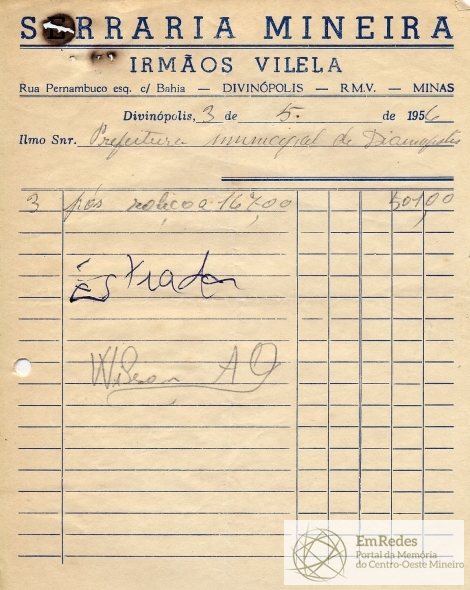 SERRARIA MINEIRA
IRMÃOS VILELA
Rua Pernambuco esq. c/ Bahia — DIVINÓPOLIS — R.M.V. — MINAS
Divinópolis, 3 de 5. de 1956
Ilmo Snr. Prefeitura municipal de Divinopolis
3 pós roliço a 167,00 501,00
Estrada
Wilson
EmRedes
Portal da Memória
do Centro-Oeste Mineiro